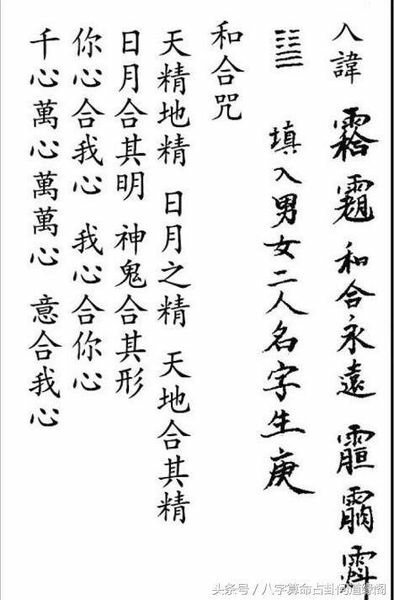 入諱 和合永遠
填入男女二人名字生庚
和合咒
天精地精 日月之精 天地合其精
日月合其明 神鬼合其形
你心合我心 我心合你心
千心萬心萬萬心 意合我心
头条号 / 八字算命占卦问道阁